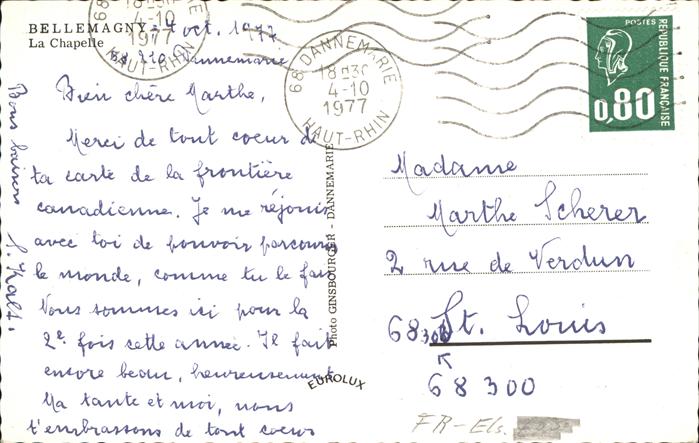 BELLEMAGNY
La Chapelle
oct. 1977
Dannemarie
Bien chère Marthe,
Merci de tout coeur de
ta carte de la frontière
canadienne. Je me réjouis
avec toi de pouvoir parcourir
le monde, comme tu le fais
Nous sommes ici pour la
2e fois cette année. Il fait
encore beau, heureusement
Ma tante et moi, nous
t'embrassons de tout coeur
Bons baisers
68 DANNEMARIE
4-10
1977
HAUT-RHIN
68 DANNEMARIE
18H30
4-10
1977
HAUT-RHIN
Photo GINSBOURGER - DANNEMARIE
EUROLUX
POSTES
RÉPUBLIQUE FRANÇAISE
0,80
Madame
Marthe Scherer
2 rue de Verdun
68300 St. Louis
68 300
FR-Els.